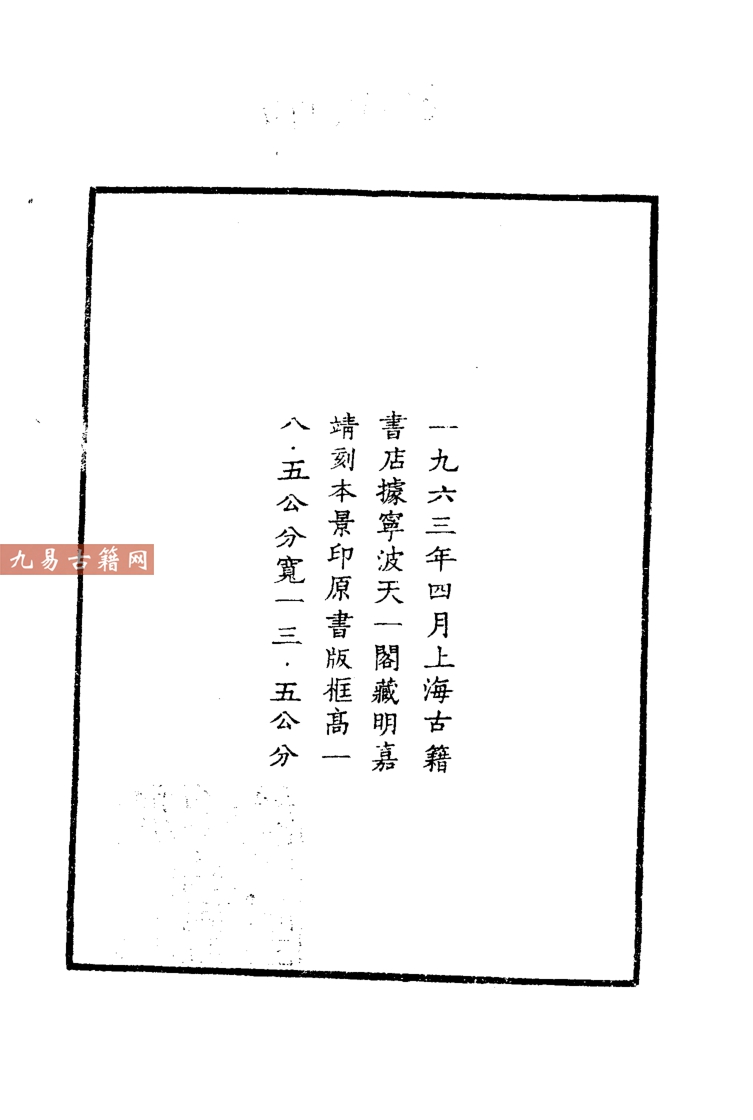 一九六三年四月上海古籍
書店據寧波天一閣藏明嘉
靖刻本景印原書版框高一
八·五公分寬一三·五公分
九易古籍网